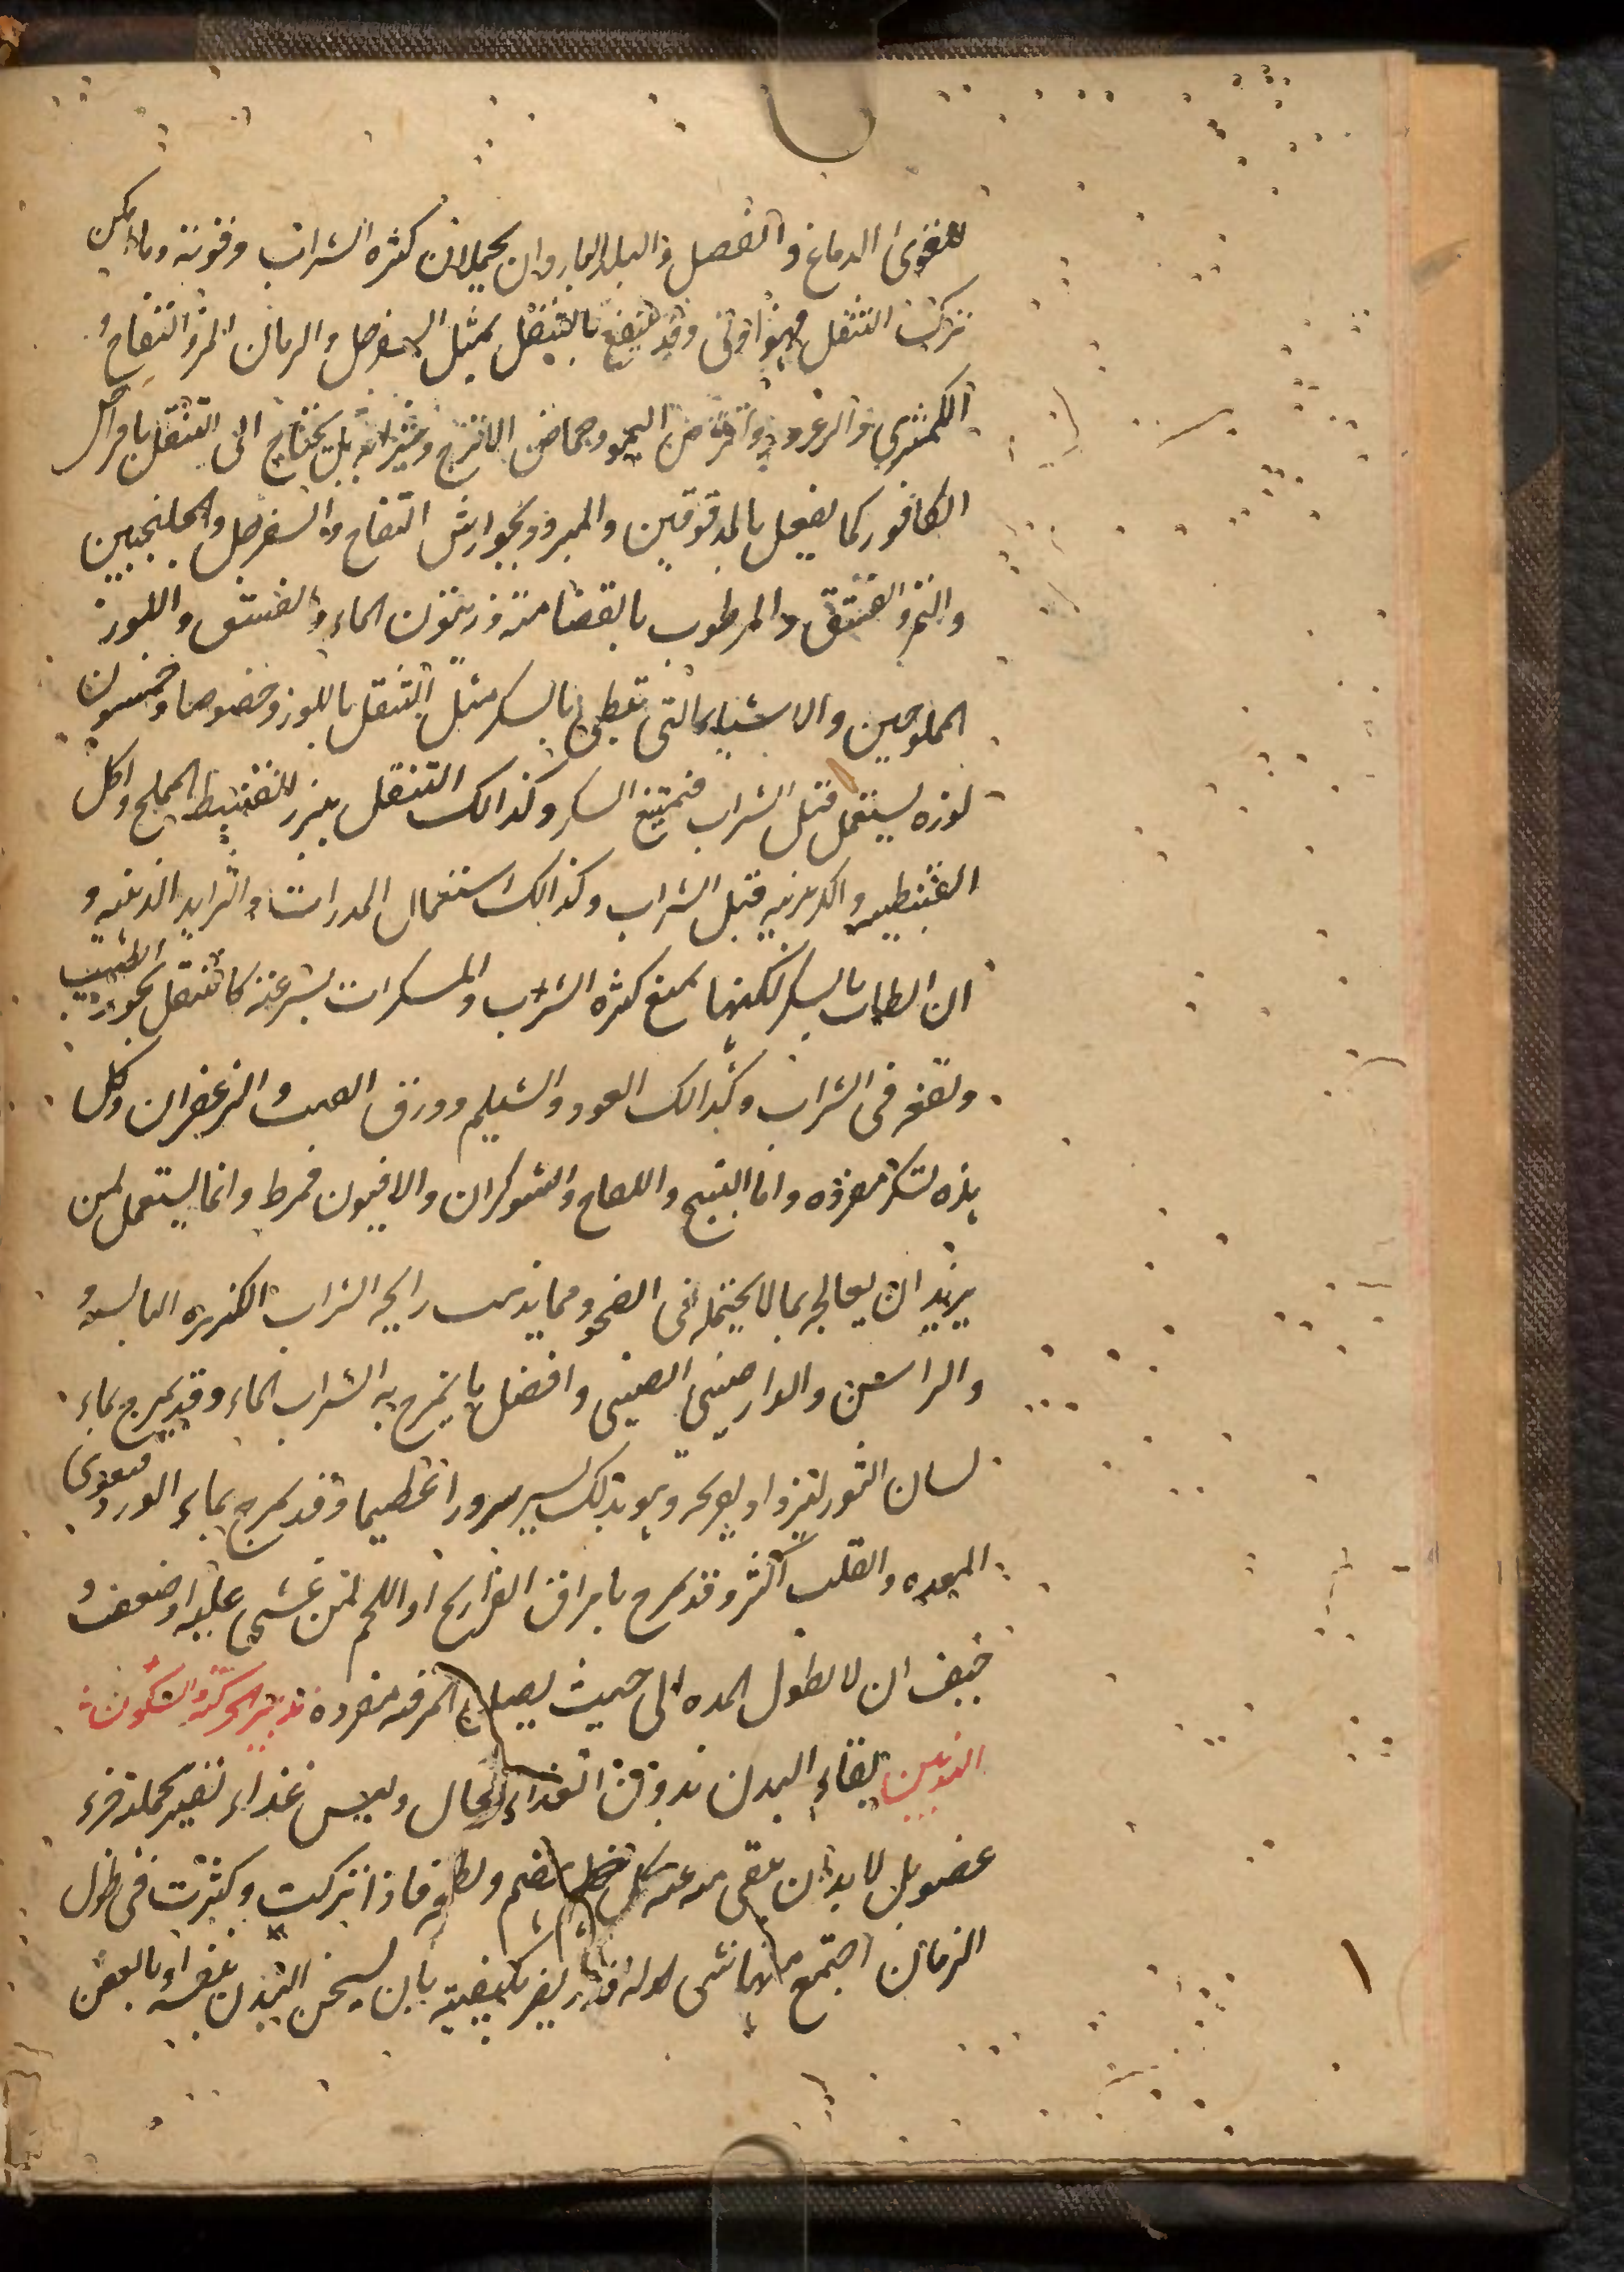 للقوى الدماغ والفصل والبلد الباردان يحملان كثرة الشراب وقوته وما امكن
ترك التنقل فهو اولى وقد ينتفع بالتنقل بمثل السفرجل والرمان المز والتفاح و
الكمثرى والزعرور واقراص الليمو وحماض الاترج وشرابه بل يحتاج الى التنقل باقراص
الكافور كما يفعل بالمدقوقين والمبرود بجوارش التفاح والسفرجل والجلنجبين
والتمر والفستق والمرطوب بالقضامة وزيتون الماء والفستق واللوز
المملوحين والاشياء التى تبطى بالسكر مثل التنقل باللوز وخصوصا وخمسون
لوزه يستعمل قبل الشراب فتمنع السكر وكذالك التنقل ببزر القنبيط المملح واكل
القنبيطيه والكرنبيه قبل الشراب وكذالك استعمال المدرات والثرايد الدهنيه و
ان ابطات بالسكر لكنها تمنع كثرة الشراب والمسكرات بسرعة كالتنقل بجوز الطيب
ونقعه فى الشراب وكذالك العود والشيلم وورق القنب والزعفران وكل
هذه تسكر مفرده واما البنج واللفاح والشوكران والافيون فمفرط وانما يستعمل لمن
يريد ان يعالج بما لا يحتمله فى الصحو ومما يذهب رايحة الشراب الكزبره اليابسه و
والراسن والدارصينى الصينى وافضل ما يمزج به الشراب الماء وقد يمزج بماء
لسان الثور ليزداد تفريحه وهو بذلك يسر سرورا عظيما وقد يمزج بماء الورد فيقوى
المعده والقلب اكثر وقد يمزج بامراق الفراريج او اللحم لمن غشى عليه او ضعف و
خيف ان لا تطول المده الى حيث يصل المرقه مفردة تدبير الحركة والسكون
البدنين بقاء البدن بدون الغذاء محال وليس غذاء يصير بجملته جزء
عضو بل لا بد ان يبقى منه عند كل هضم ولطخه فاذا تركت وكثرت فى طول
الزمان اجتمع منها شى له قدر يضر بكيفيته بان يسخن البدن بنفسه او بالعفن